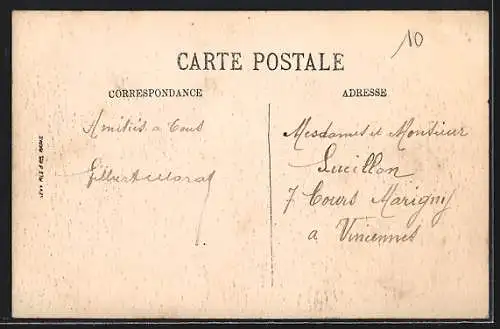 10
CARTE POSTALE
CORRESPONDANCE
ADRESSE
Amitiés a tous
Gilbert
Mesdames et Monsieur
Lucillon
7 Cours Marigny
a Vincennes